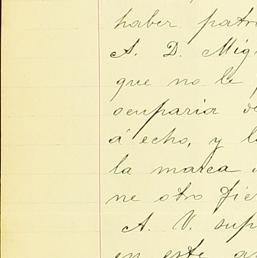 haber patr
A. D. Mig
que no le
ocuparia de
á echo, y l
la marca
ne otro fie
A. V. sup
en este a